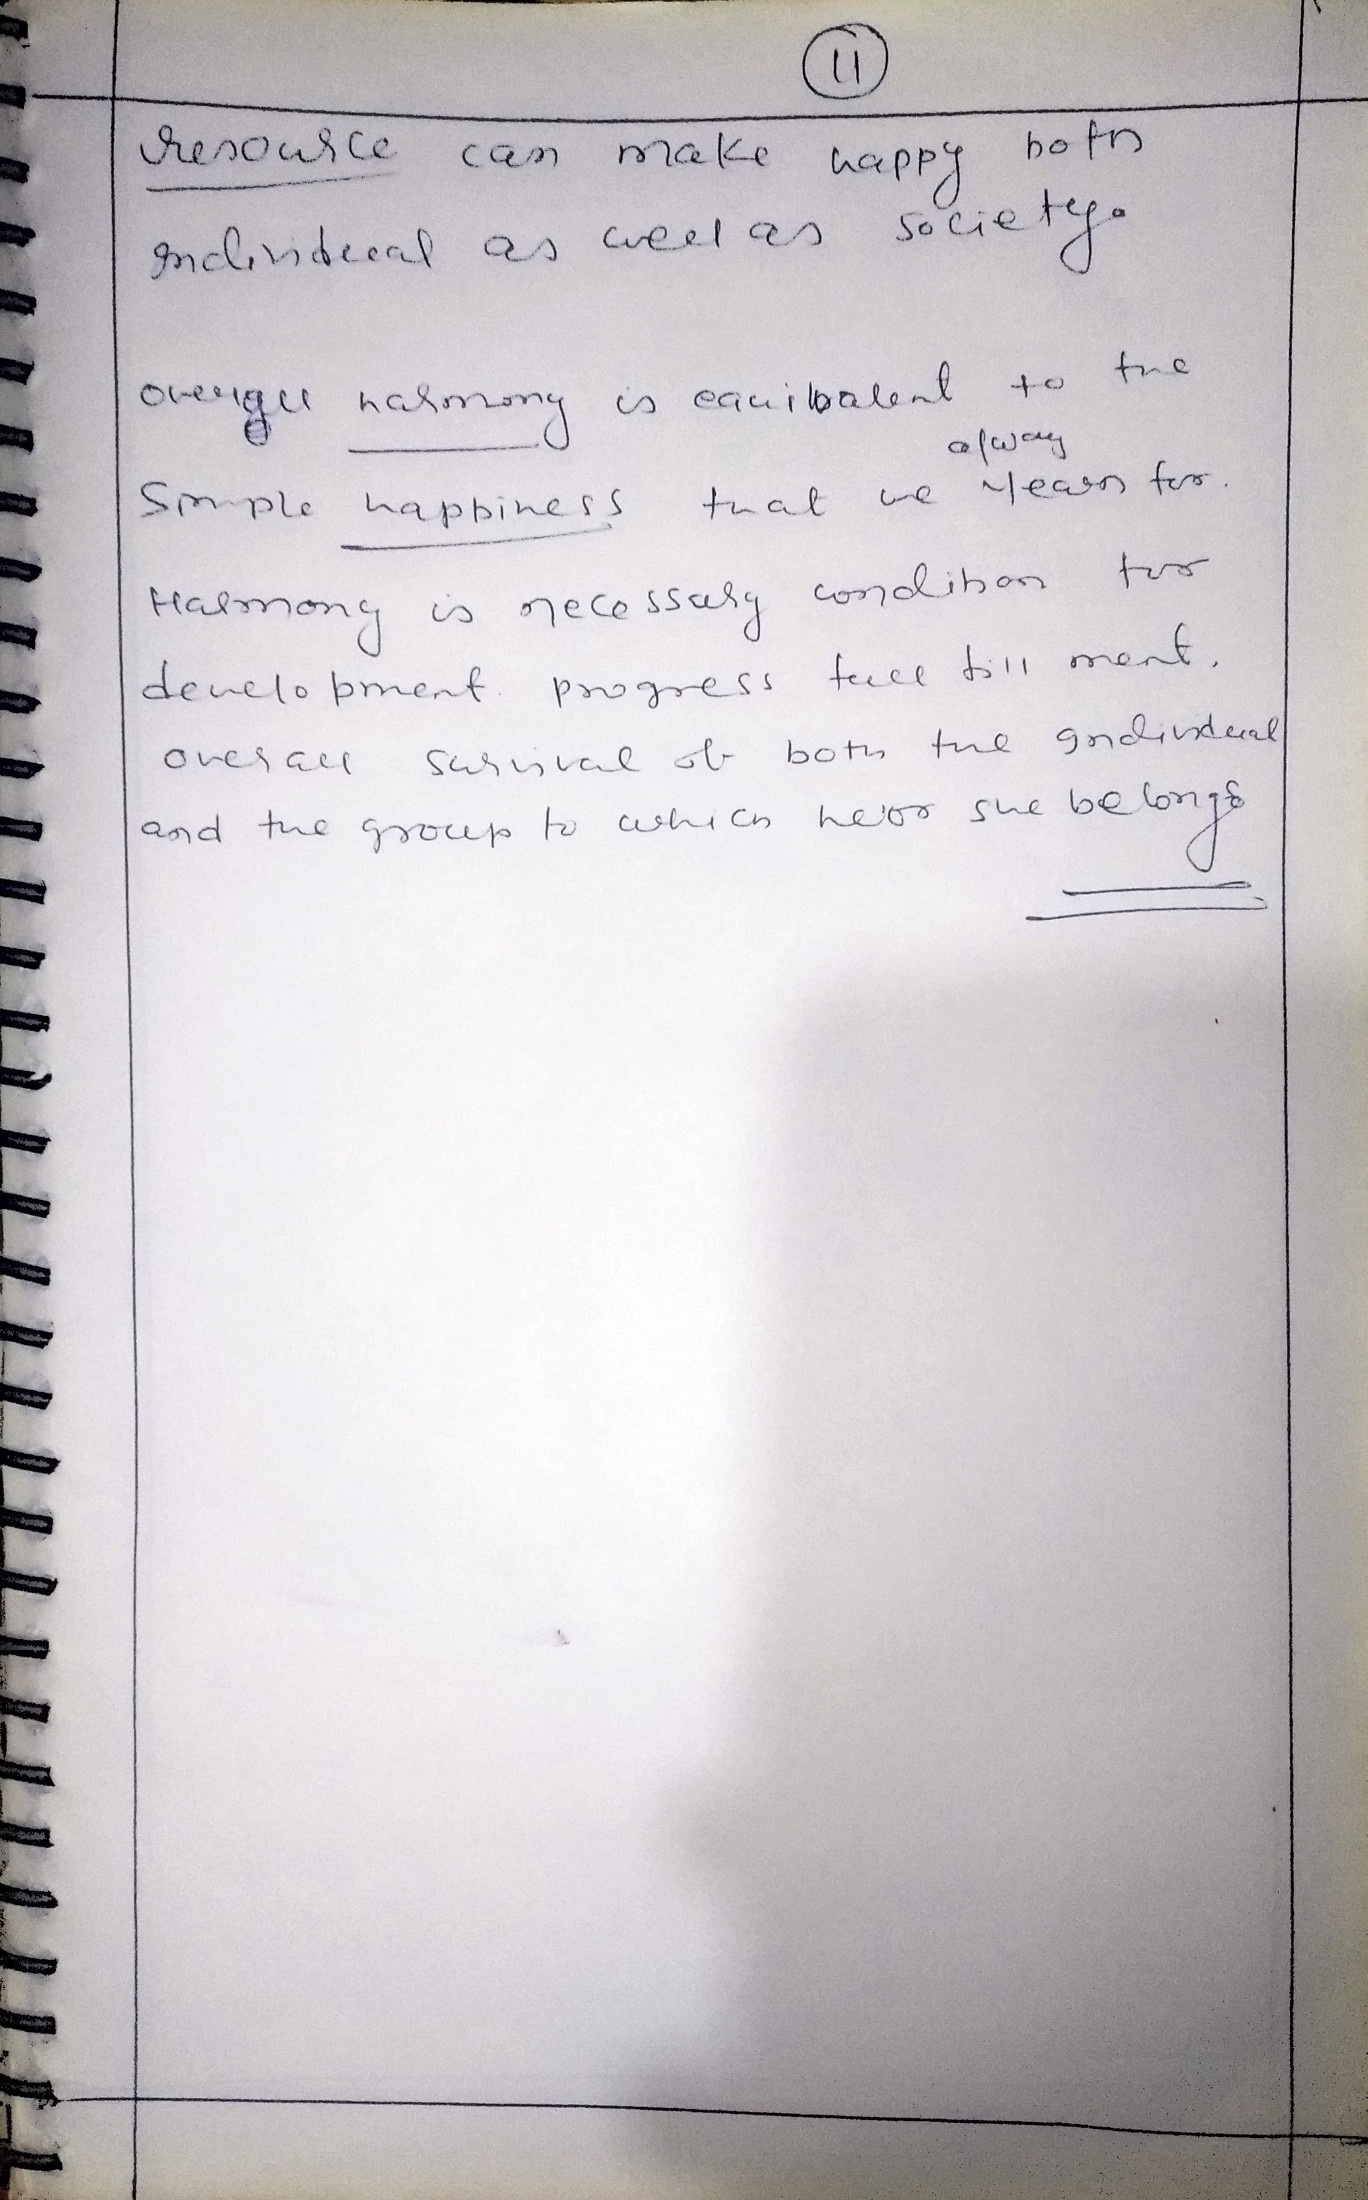 11
resource can make happy both
Individual as well as society.
overall harmony is equibalent to the
alway
Simple happiness that we yearn for.
Harmony is necessary condition for
development progress full fill ment.
overall survival of both the individual
and the group to which he or she belongs